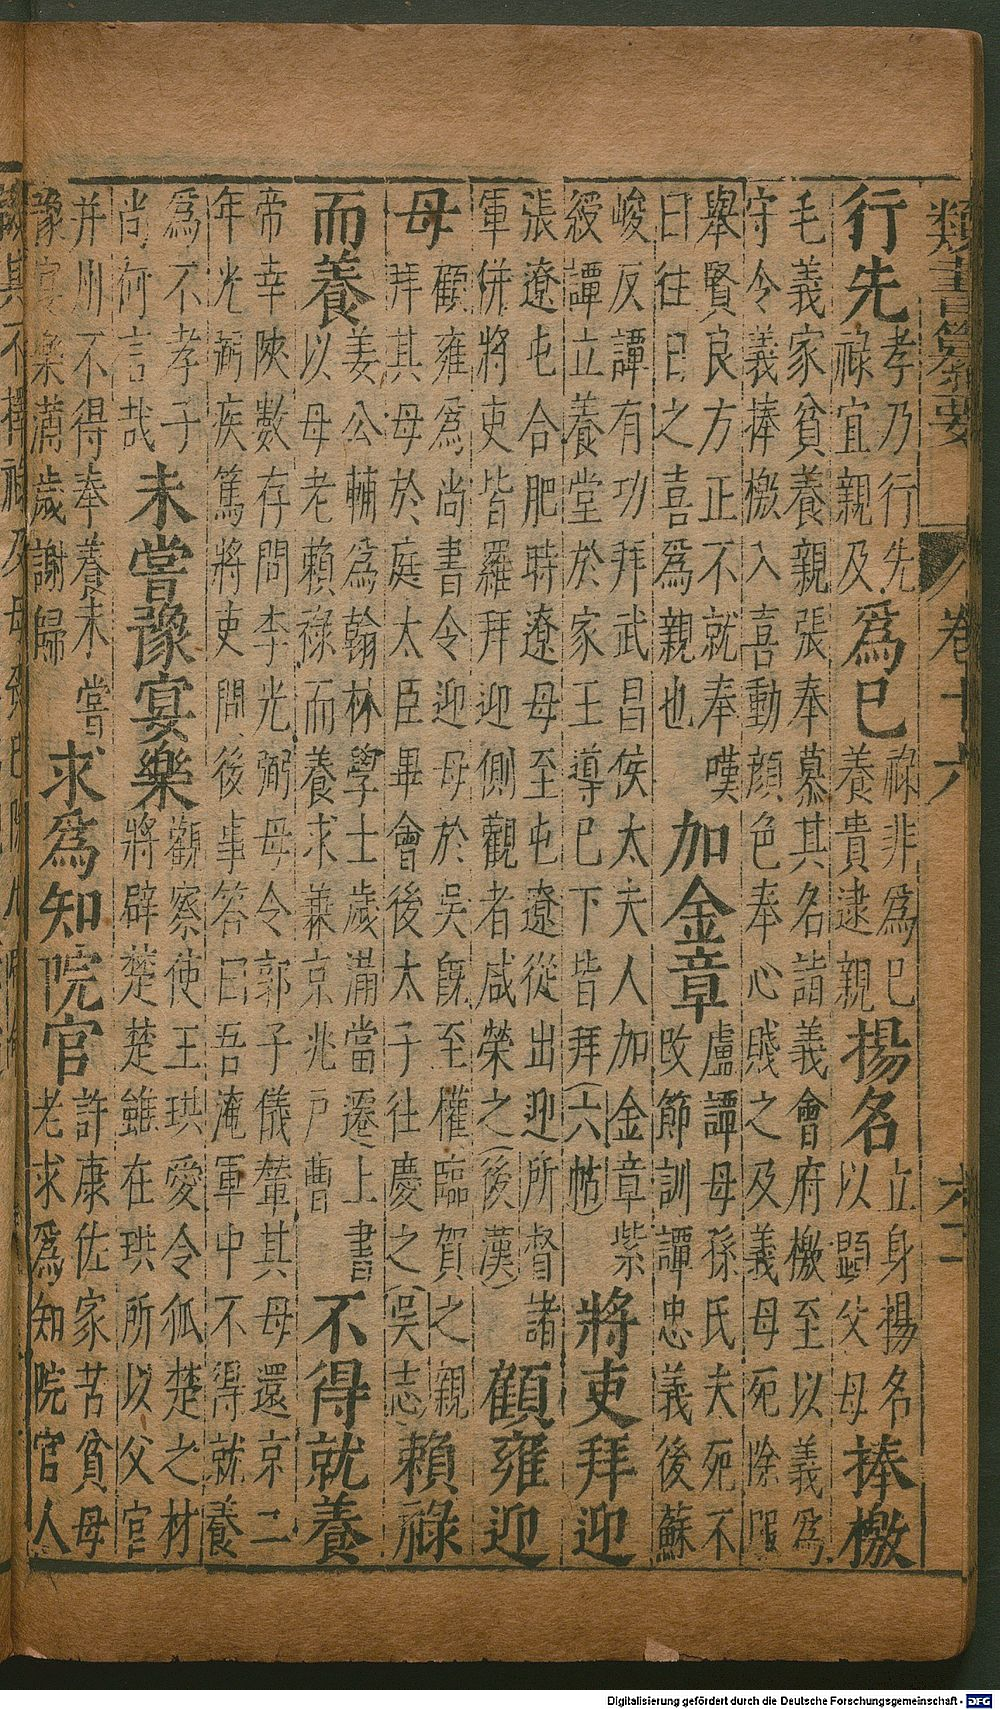 類書纂要 卷十六
行先 孝乃行先
祿宜親及
爲己 祿非爲己
養貴逮親
揚名 立身揚名
以顯父母
捧檄
毛義家貧養親張奉慕其名詣義會府檄至以義爲
守令義捧檄入喜動顏色奉心賤之及義母死除服
舉賢良方正不就奉嘆
曰往日之喜爲親也
加金章 盧譚母孫氏夫死不
改節訓譚忠義後蘇
峻反譚有功拜武昌侯太夫人加金章紫
綬譚立養堂於家王導已下皆拜(六帖)
將吏拜迎
張遼屯合肥時遼母至屯遼從出迎所督諸
軍併將吏皆羅拜迎側觀者咸榮之(後漢)
顧雍迎
母 顧雍爲尚書令迎母於吳旣至權臨賀之親
拜其母於庭太臣畢會後太子往慶之(吳志)
賴祿
而養 姜公輔爲翰林學士歲滿當遷上書
以母老賴祿而養求兼京兆戶曹
不得就養
帝幸陝數存問李光弼母令郭子儀輦其母還京二
年光弼疾篤將吏問後事答曰吾淹軍中不得就養
爲不孝子
尚何言哉
未嘗豫宴樂 觀察使王珙愛令狐楚之材
將辟楚楚雖在珙所以父官
并州不得奉養未嘗
豫宴樂滿歲謝歸
求爲知院官 許康佐家苦貧母
老求爲知院官人
Digitalisierung gefördert durch die Deutsche Forschungsgemeinschaft - DFG